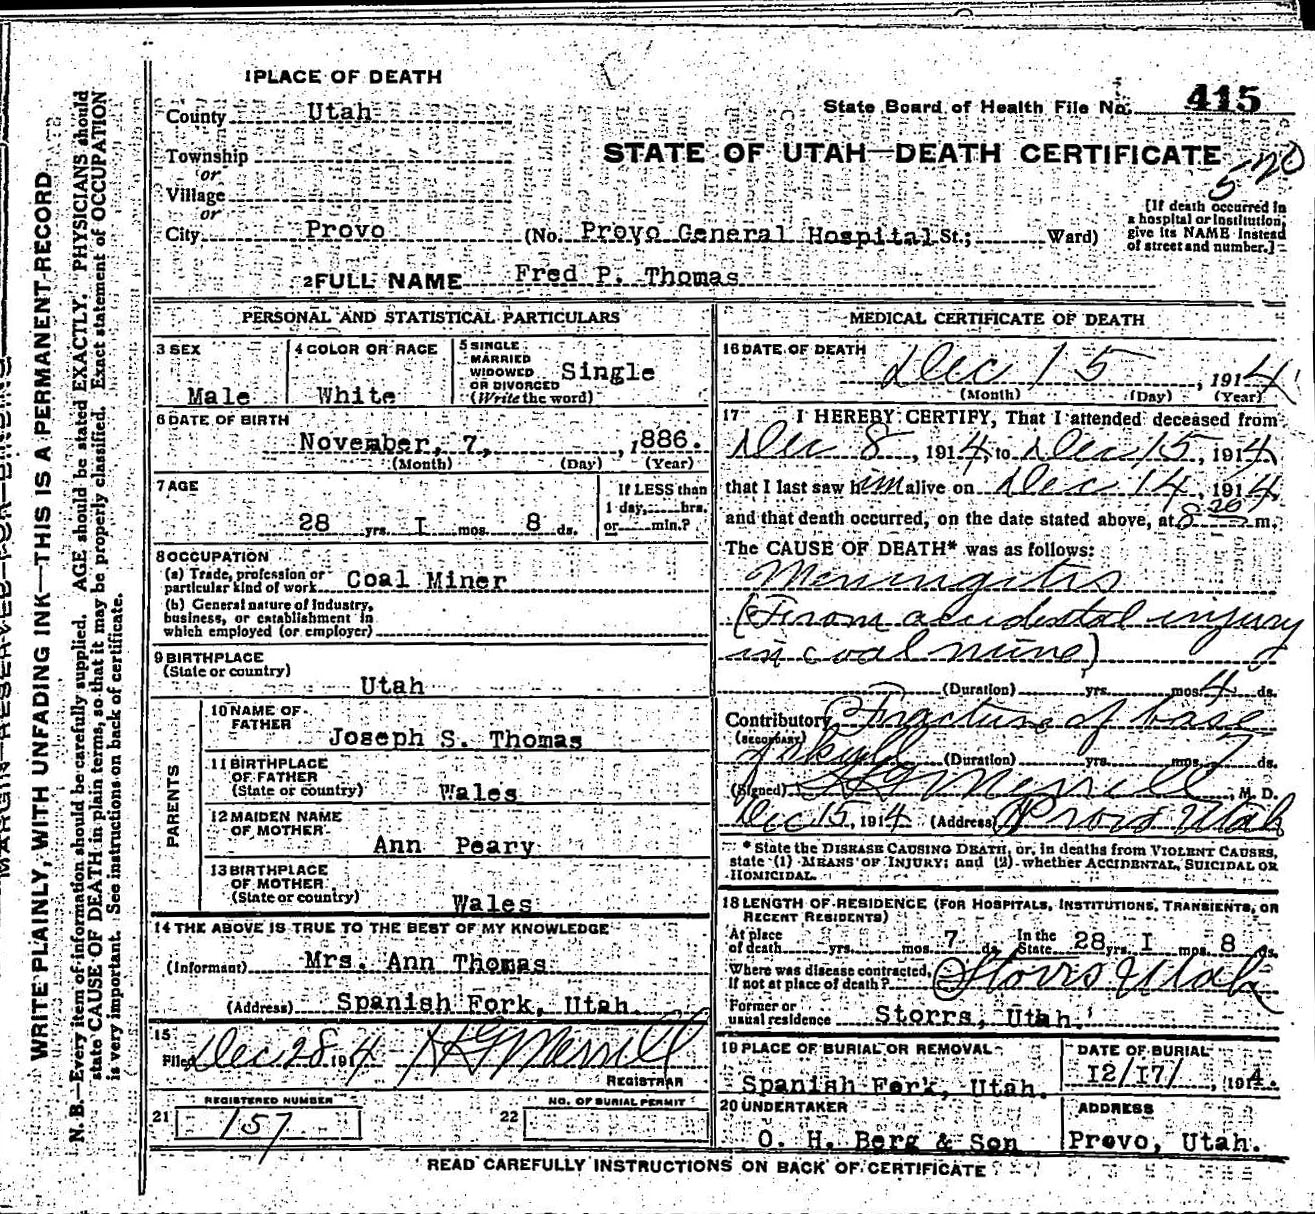 1 PLACE OF DEATH
County Utah
State Board of Health File No. 415
Township
or
Village
or
City Provo (No. Provo General Hospital St.; Ward)
STATE OF UTAH—DEATH CERTIFICATE
520
[If death occurred in
a hospital or institution,
give its NAME instead
of street and number.]
2 FULL NAME Fred P. Thomas
PERSONAL AND STATISTICAL PARTICULARS
3 SEX
Male
4 COLOR OR RACE
White
5 SINGLE
MARRIED
WIDOWED
OR DIVORCED
(Write the word)
Single
6 DATE OF BIRTH
November, 7, , 1886.
(Month) (Day) (Year)
7 AGE
28 yrs. I mos. 8 ds.
If LESS than
1 day, hrs.
or min.?
8 OCCUPATION
(a) Trade, profession or
particular kind of work Coal Miner
(b) General nature of industry,
business, or establishment in
which employed (or employer)
9 BIRTHPLACE
(State or country)
Utah
PARENTS
10 NAME OF
FATHER
Joseph S. Thomas
11 BIRTHPLACE
OF FATHER
(State or country) Wales
12 MAIDEN NAME
OF MOTHER
Ann Peary
13 BIRTHPLACE
OF MOTHER
(State or country) Wales
14 THE ABOVE IS TRUE TO THE BEST OF MY KNOWLEDGE
(Informant) Mrs. Ann Thomas
(Address) Spanish Fork, Utah.
15
Filed Dec 28 1914 H G Merrill
REGISTRAR
REGISTERED NUMBER
21 157
NO. OF BURIAL PERMIT
22
MEDICAL CERTIFICATE OF DEATH
16 DATE OF DEATH
Dec 15 , 1914
(Month) (Day) (Year)
17 I HEREBY CERTIFY, That I attended deceased from
Dec 8 , 1914, to Dec 15, 1914,
that I last saw him alive on Dec 14, 1914,
and that death occurred, on the date stated above, at 8 20 m.
The CAUSE OF DEATH* was as follows:
Meningitis
(From accidental injury
in coal mine)
(Duration) yrs. mos. 4 ds.
Contributory Fracture of base
(SECONDARY)
of skull (Duration) yrs. mos. 7 ds.
(Signed) H G Merrill, M. D.
Dec 15, 1914 (Address) Provo Utah
* State the DISEASE CAUSING DEATH, or, in deaths from VIOLENT CAUSES,
state (1) MEANS OF INJURY; and (2) whether ACCIDENTAL, SUICIDAL OR
HOMICIDAL.
18 LENGTH OF RESIDENCE (FOR HOSPITALS, INSTITUTIONS, TRANSIENTS, OR
RECENT RESIDENTS)
At place
of death yrs. mos. 7 ds.
In the
State 28 yrs. I mos. 8 ds.
Where was disease contracted,
If not at place of death? Storrs Utah
Former or
usual residence Storrs, Utah.
19 PLACE OF BURIAL OR REMOVAL
Spanish Fork, Utah.
DATE OF BURIAL
I2/I7/ , 1914.
20 UNDERTAKER
O. H. Berg & Son
ADDRESS
Provo, Utah.
READ CAREFULLY INSTRUCTIONS ON BACK OF CERTIFICATE
MARGIN RESERVED FOR BINDING
WRITE PLAINLY, WITH UNFADING INK—THIS IS A PERMANENT RECORD
N. B.—Every item of information should be carefully supplied. AGE should be stated EXACTLY. PHYSICIANS should
state CAUSE OF DEATH in plain terms, so that it may be properly classified. Exact statement of OCCUPATION
is very important. See instructions on back of certificate.